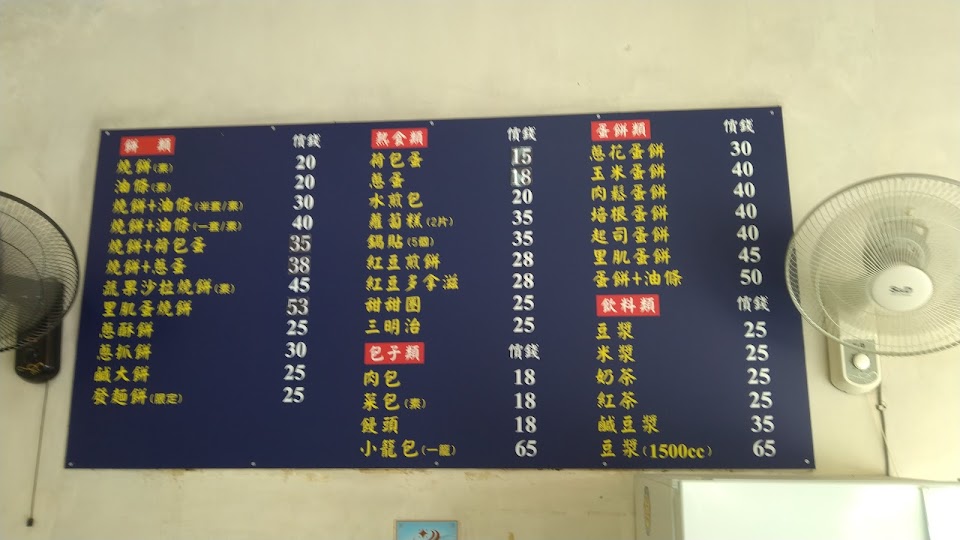 餅類 價錢
燒餅(素) 20
油條(素) 20
燒餅+油條(半套/素) 30
燒餅+油條(一套/素) 40
燒餅+荷包蛋 35
燒餅+蔥蛋 38
蔬果沙拉燒餅(素) 45
里肌蛋燒餅 53
蔥酥餅 25
蔥抓餅 30
鹹大餅 25
發麵餅(限定) 25
熟食類 價錢
荷包蛋 15
蔥蛋 18
水煎包 20
蘿蔔糕(2片) 35
鍋貼(5個) 35
紅豆煎餅 28
紅豆多拿滋 28
甜甜圈 25
三明治 25
包子類 價錢
肉包 18
菜包(素) 18
饅頭 18
小籠包(一籠) 65
蛋餅類 價錢
蔥花蛋餅 30
玉米蛋餅 40
肉鬆蛋餅 40
培根蛋餅 40
起司蛋餅 40
里肌蛋餅 45
蛋餅+油條 50
飲料類 價錢
豆漿 25
米漿 25
奶茶 25
紅茶 25
鹹豆漿 35
豆漿(1500cc) 65